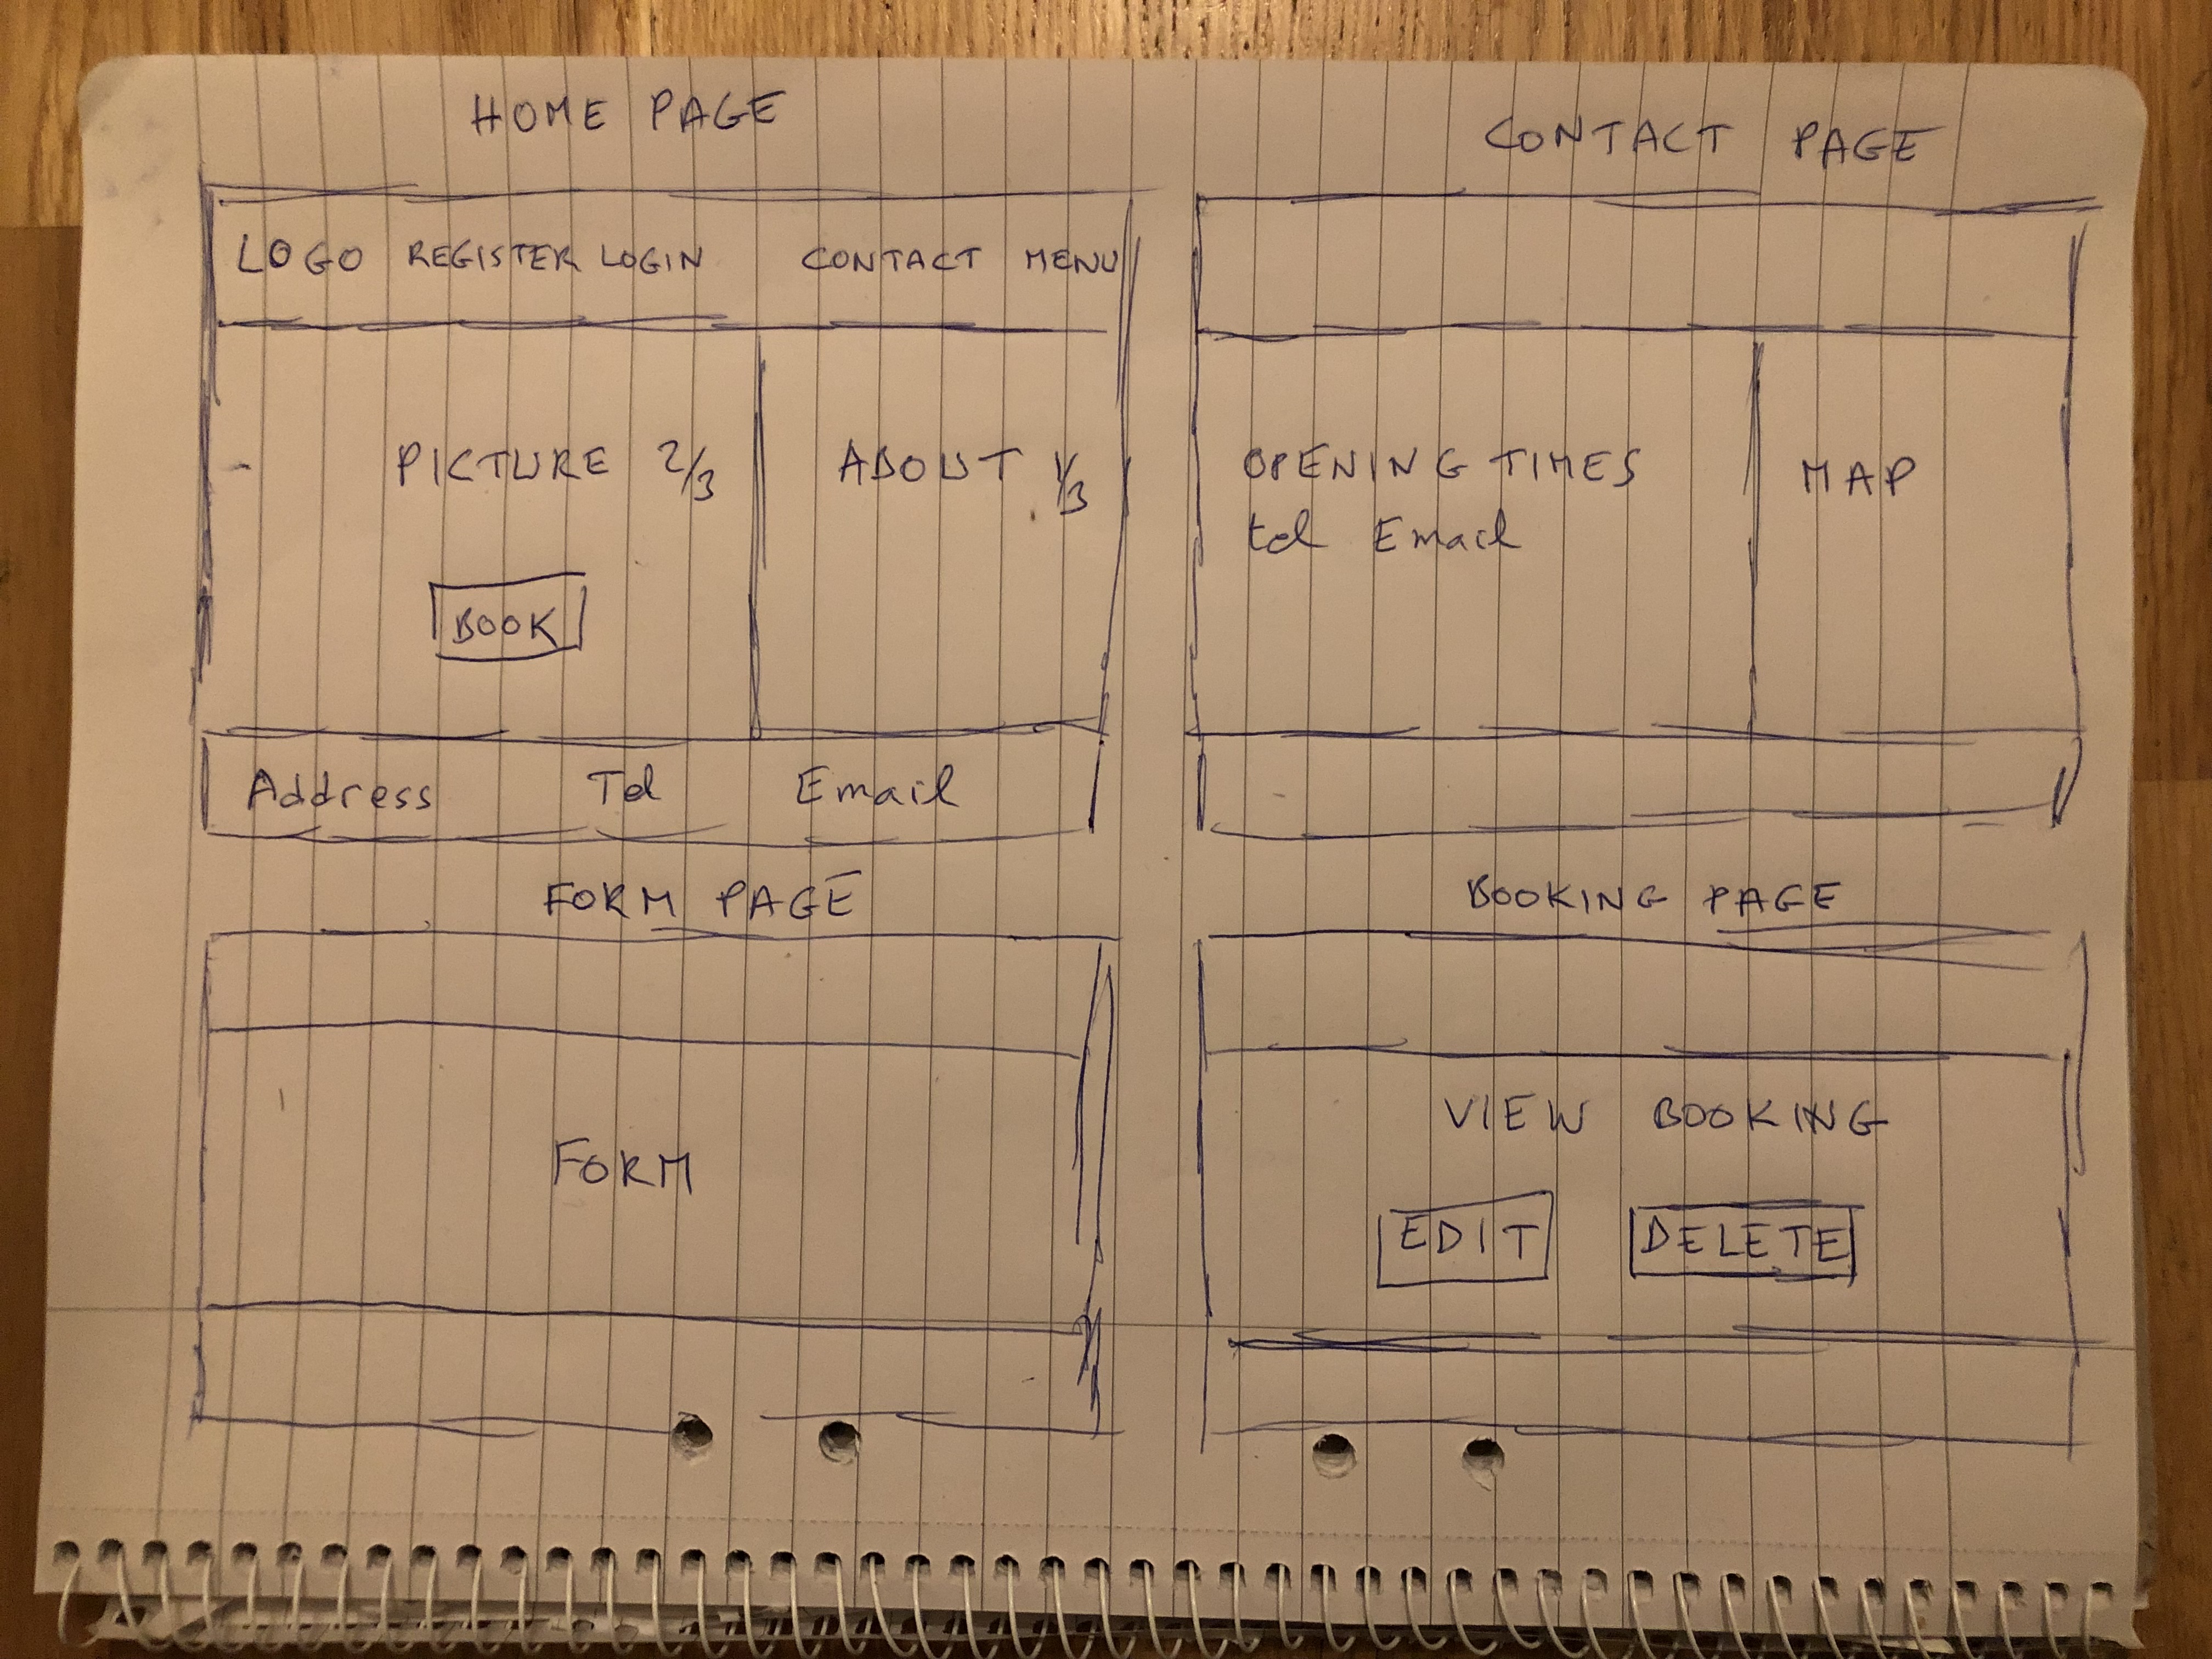 HOME PAGE
LOGO REGISTER LOGIN CONTACT MENU
PICTURE 2/3
BOOK
ABOUT 1/3
Address Tel Email
CONTACT PAGE
OPENING TIMES
tel Email
MAP
FORM PAGE
FORM
BOOKING PAGE
VIEW BOOKING
EDIT DELETE